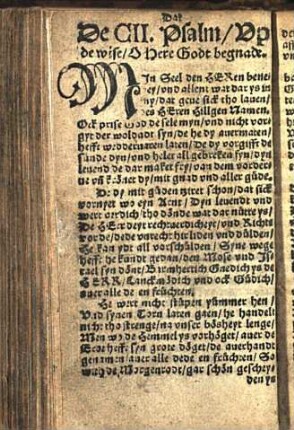 Dat
De CII. Psalm / Vp
de wise / O Here Godt begnade.
MIn Seel den HERen bene
dey / vnd allent wat dar ys in
my / dat geue sick tho lauen /
des HEren hilligen Namen.
Ock prise Godde siele myn / vnd nicht vor
gyt der woldadt syn / de he dy auermaten /
hefft wedderuaren laten / De dy vorgifft dy
sünde dyn / vnd helet all gebreken syn / dyn
leuend de dar maket fry / vor dem vorderf
ue vñ krönet dy / mit gnad vnd aller güde.
De dy mit güden zyret schon / dat sick
vornyet wo eyn Arnt / Dyn leuendt vnd
wert oerdich / tho donde wat dar nütte ys /
De HEre deyt rechtuerdicheyt / vnd Richte
vor de / de de vnrecht hir liden vnd dülden /
He kan ydt all vorschülden / Syne wege
hefft he kundt gedan / den Mose vnd Js-
rael syn döent / Barmhertich Gnedich ys de
HERR / Lanckmödich vnd ock Güdich /
auer alle de en früchten.
He wert nicht stüpen yümmer hen /
Vnd synen Torn laten gaen / he handelt
nicht tho strenge / na vnser bösheyt lenge /
Men wo de Hemmel ys vorhöget / auer de
Erde hefft syn grote döget / de auerhandt
genamen auer alle dede en früchten / So
wyt de Morgenrode / gar schön geschey-
den ys